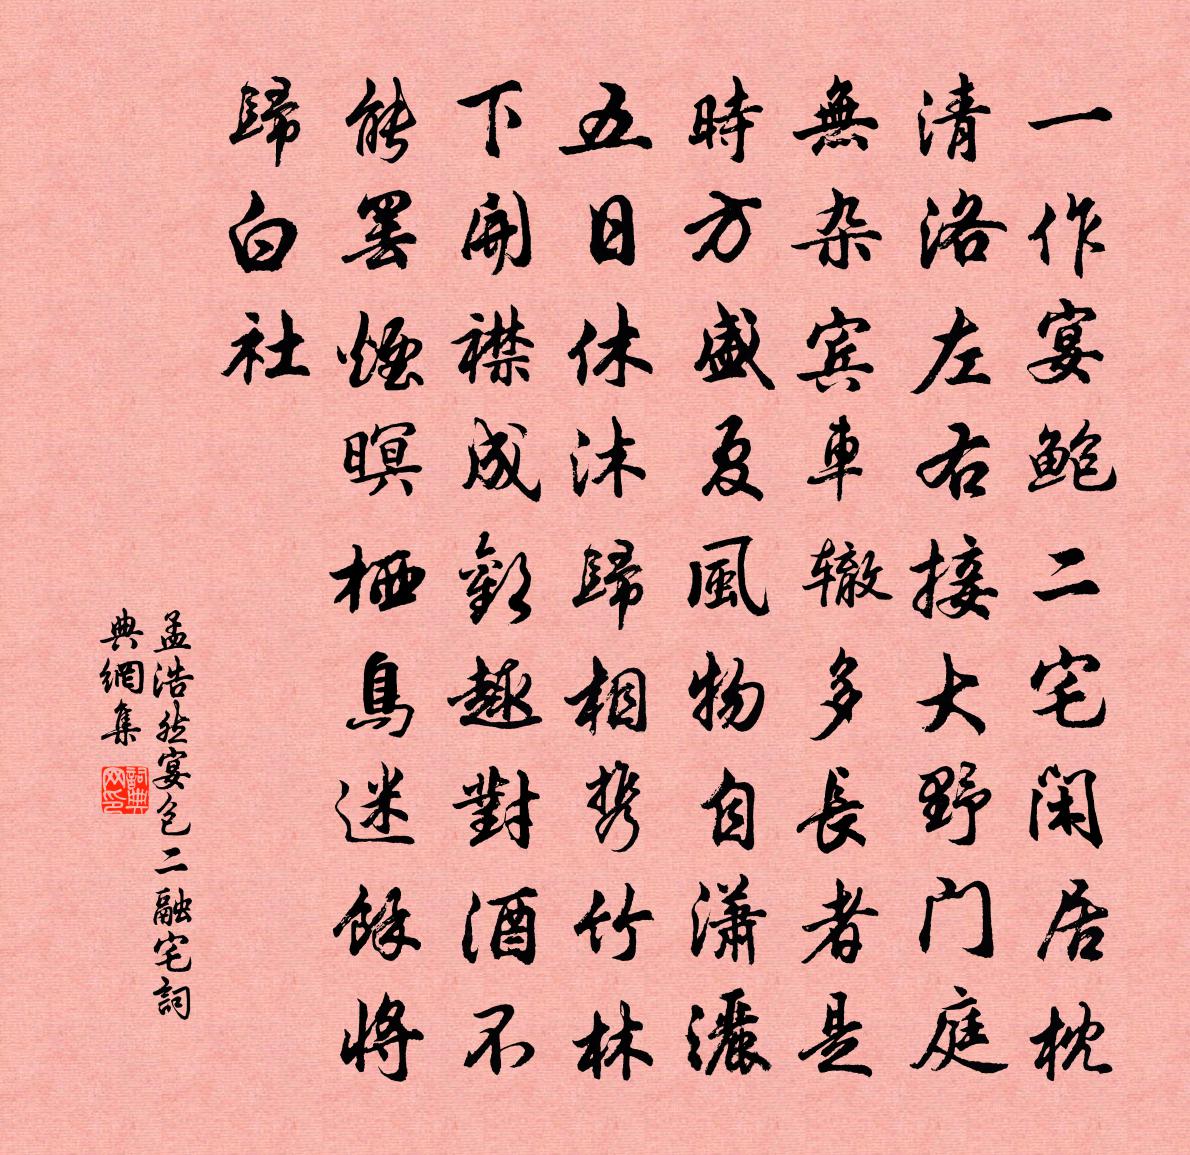 一作宴鲍二宅闲居枕
清洛左右接大野门庭
無杂宾車辙多長者是
時方盛夏風物自潇灑
五日休沐歸相携竹林
下開襟成歡趣對酒不
能罢煙暝栖鳥迷餘將
歸白社
孟浩然宴包二融宅詞
典網集
詞典网印